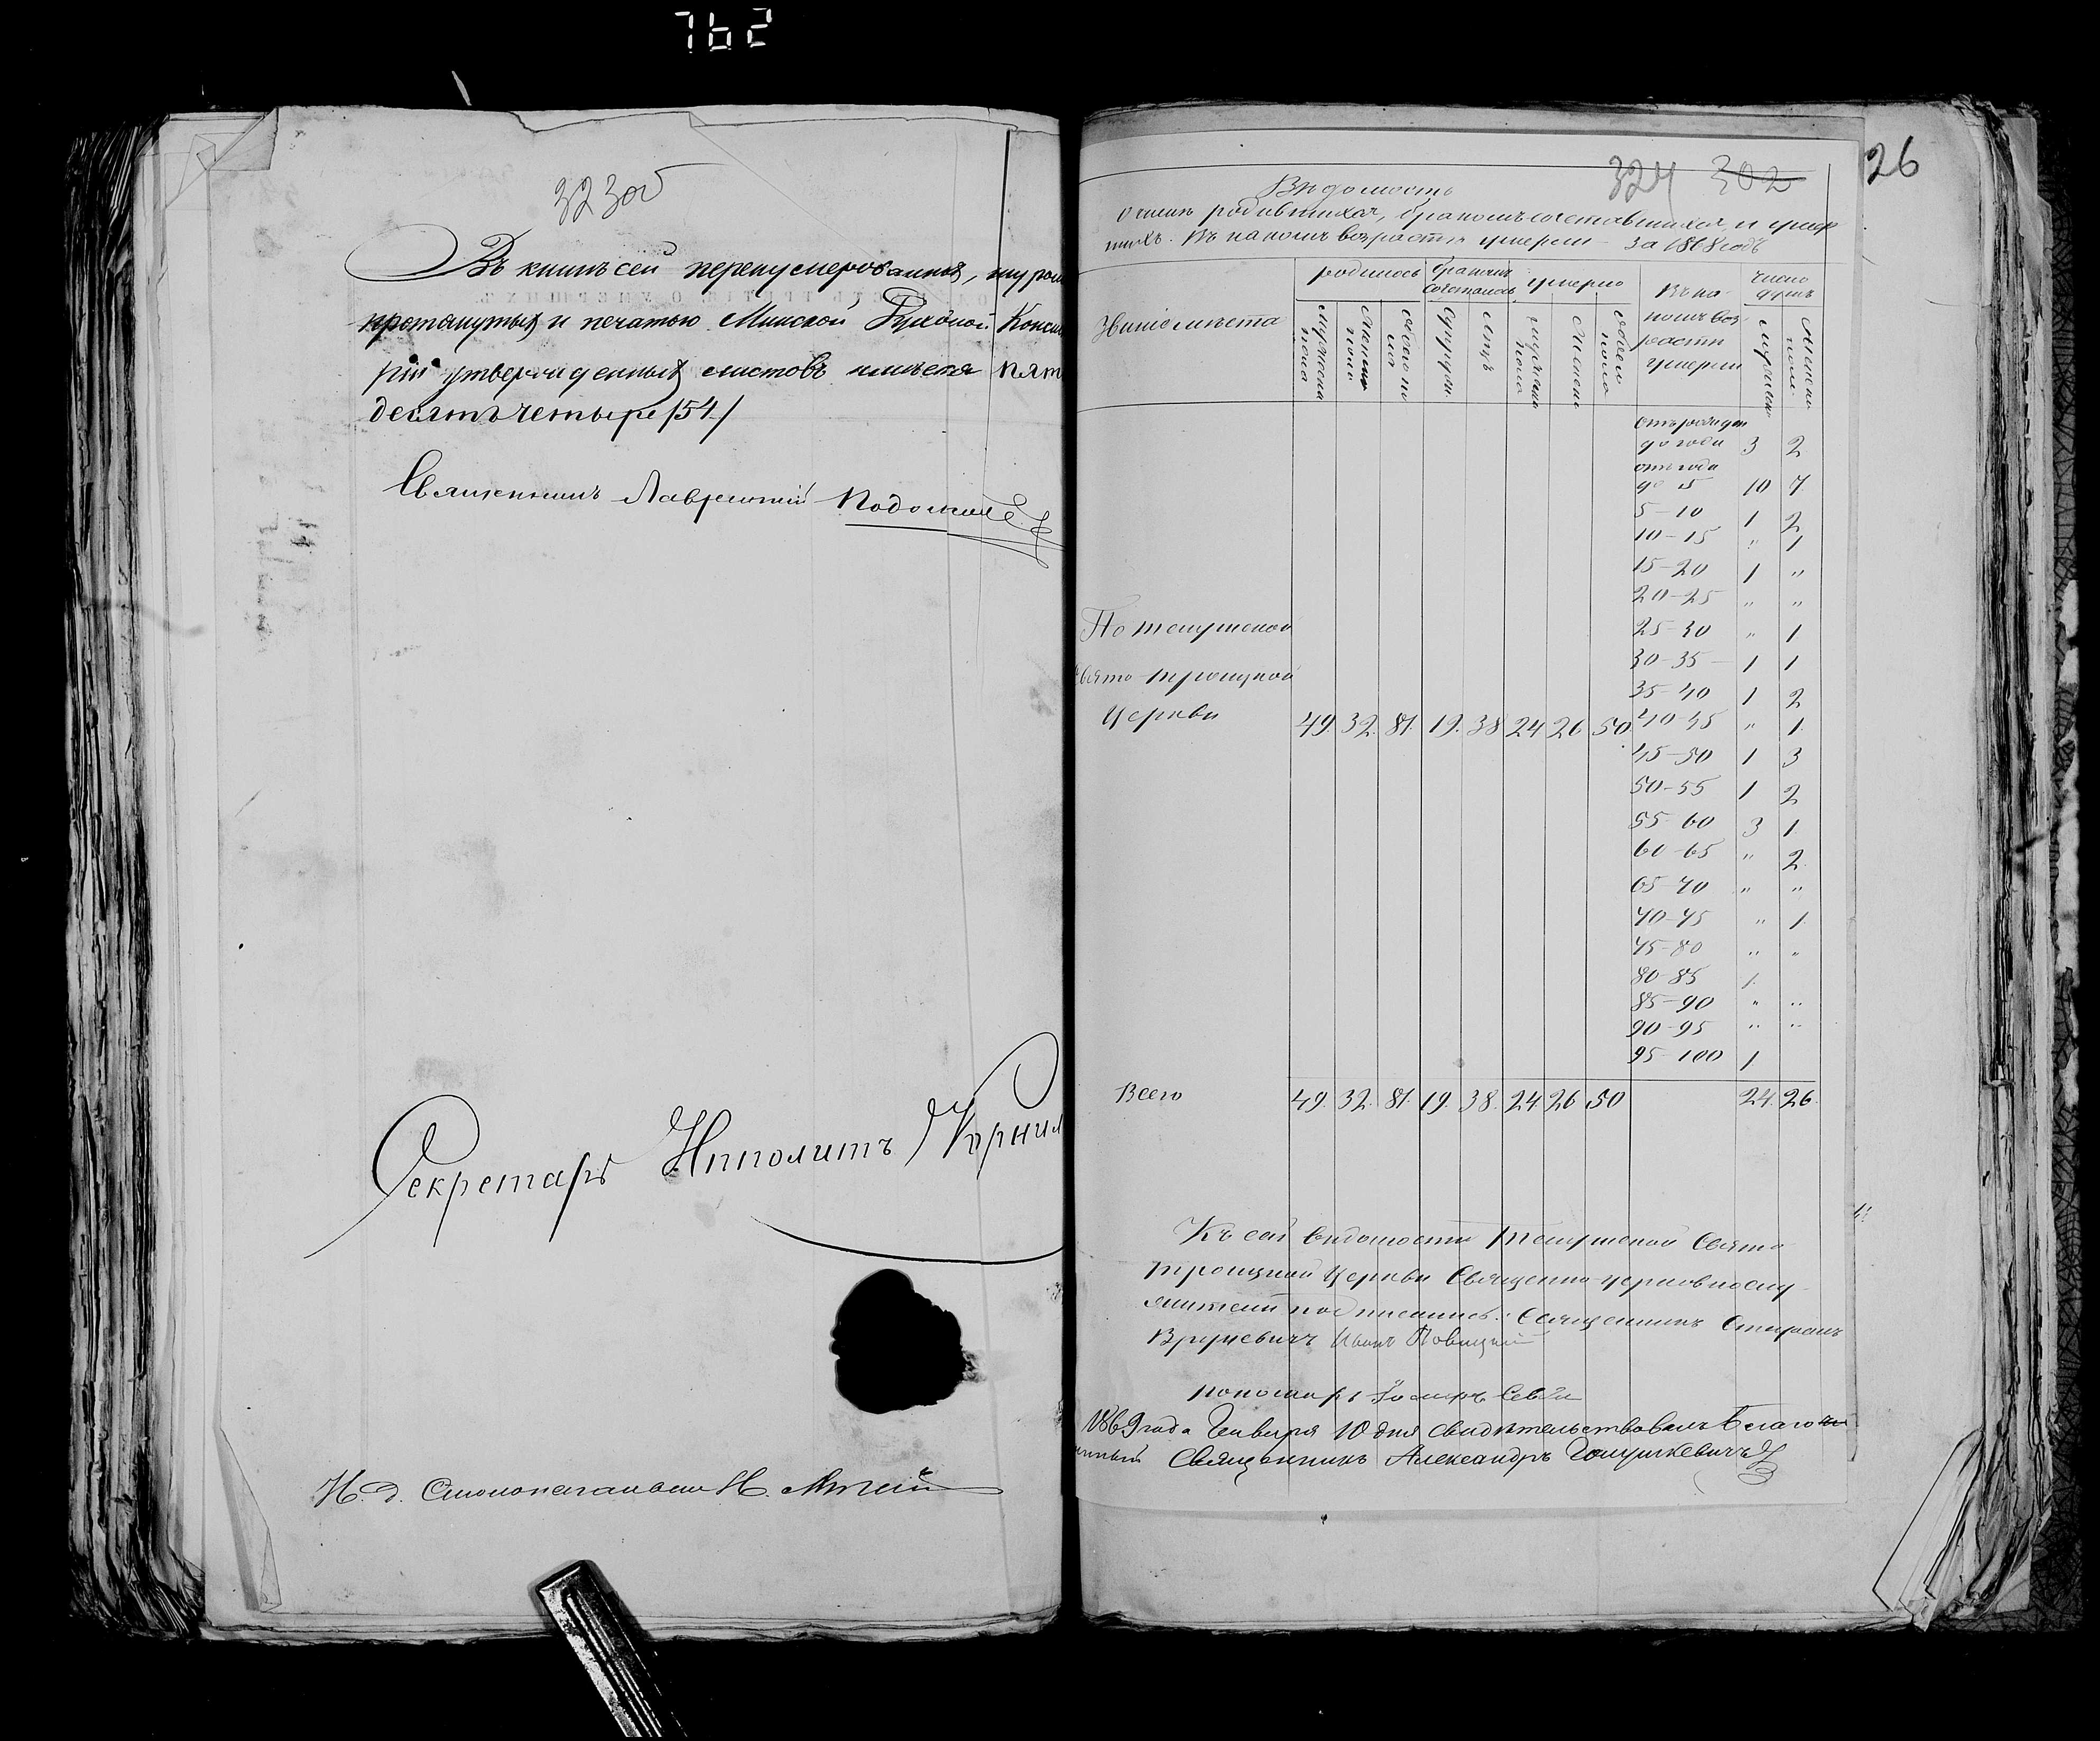 762
323 об
Въ книгѣ сей перенумерованныхъ, шнуром
протянутыхъ и печатью Минской Духовной Консисто
ріи утвержденныхъ листовъ имѣется пять
десятъ четыре /54/
Священникъ Лаврентій
Секретарь Ипполитъ Корнил
И. д. Столоначальника Н.
26
324 302
Вѣдомость
о числѣ родившихся, бракомъ сочетавшихся, и умер
шихъ. Въ какомъ возрастѣ умерли за 1868 годъ
Званіе мѣста
родилось
бракомъ сочеталось
умерло
Въ ка-
комъ воз-
растѣ
умерли
число
душъ
мужеска пола
женска пола
обоего пола
супруж.
лицъ
мужеска пола
женска
обоего пола
мужеска
женска пола
отъ рожден
до года 3 2
отъ года
до 5 10 7
5-10 1 2
10-15 " 1
15-20 1 "
20-25 " "
25-30 " 1
По
30-35 1 1
Свято Троицкой
35-40 1 2
Церкви 49. 32. 81. 19. 38 24 26 50
40-45 " 1.
45-50 1 3
50-55 1 2
55-60 3 1.
60-65 " 2.
65-70 " "
70-75 " 1.
75-80 " "
80-85 1.
85-90 " "
90-95 " "
95-100 1
Всего 49. 32. 81. 19. 38. 24 26 50 24. 26.
Къ сей вѣдомости Свято
Троицкой Церкви Священно-церковнослу-
жители подписались: Священникъ Стефанъ
Иванъ
пономарь
1869 года Генваря 10 дня свидѣтельствовалъ Благочи
нный Священникъ Александръ